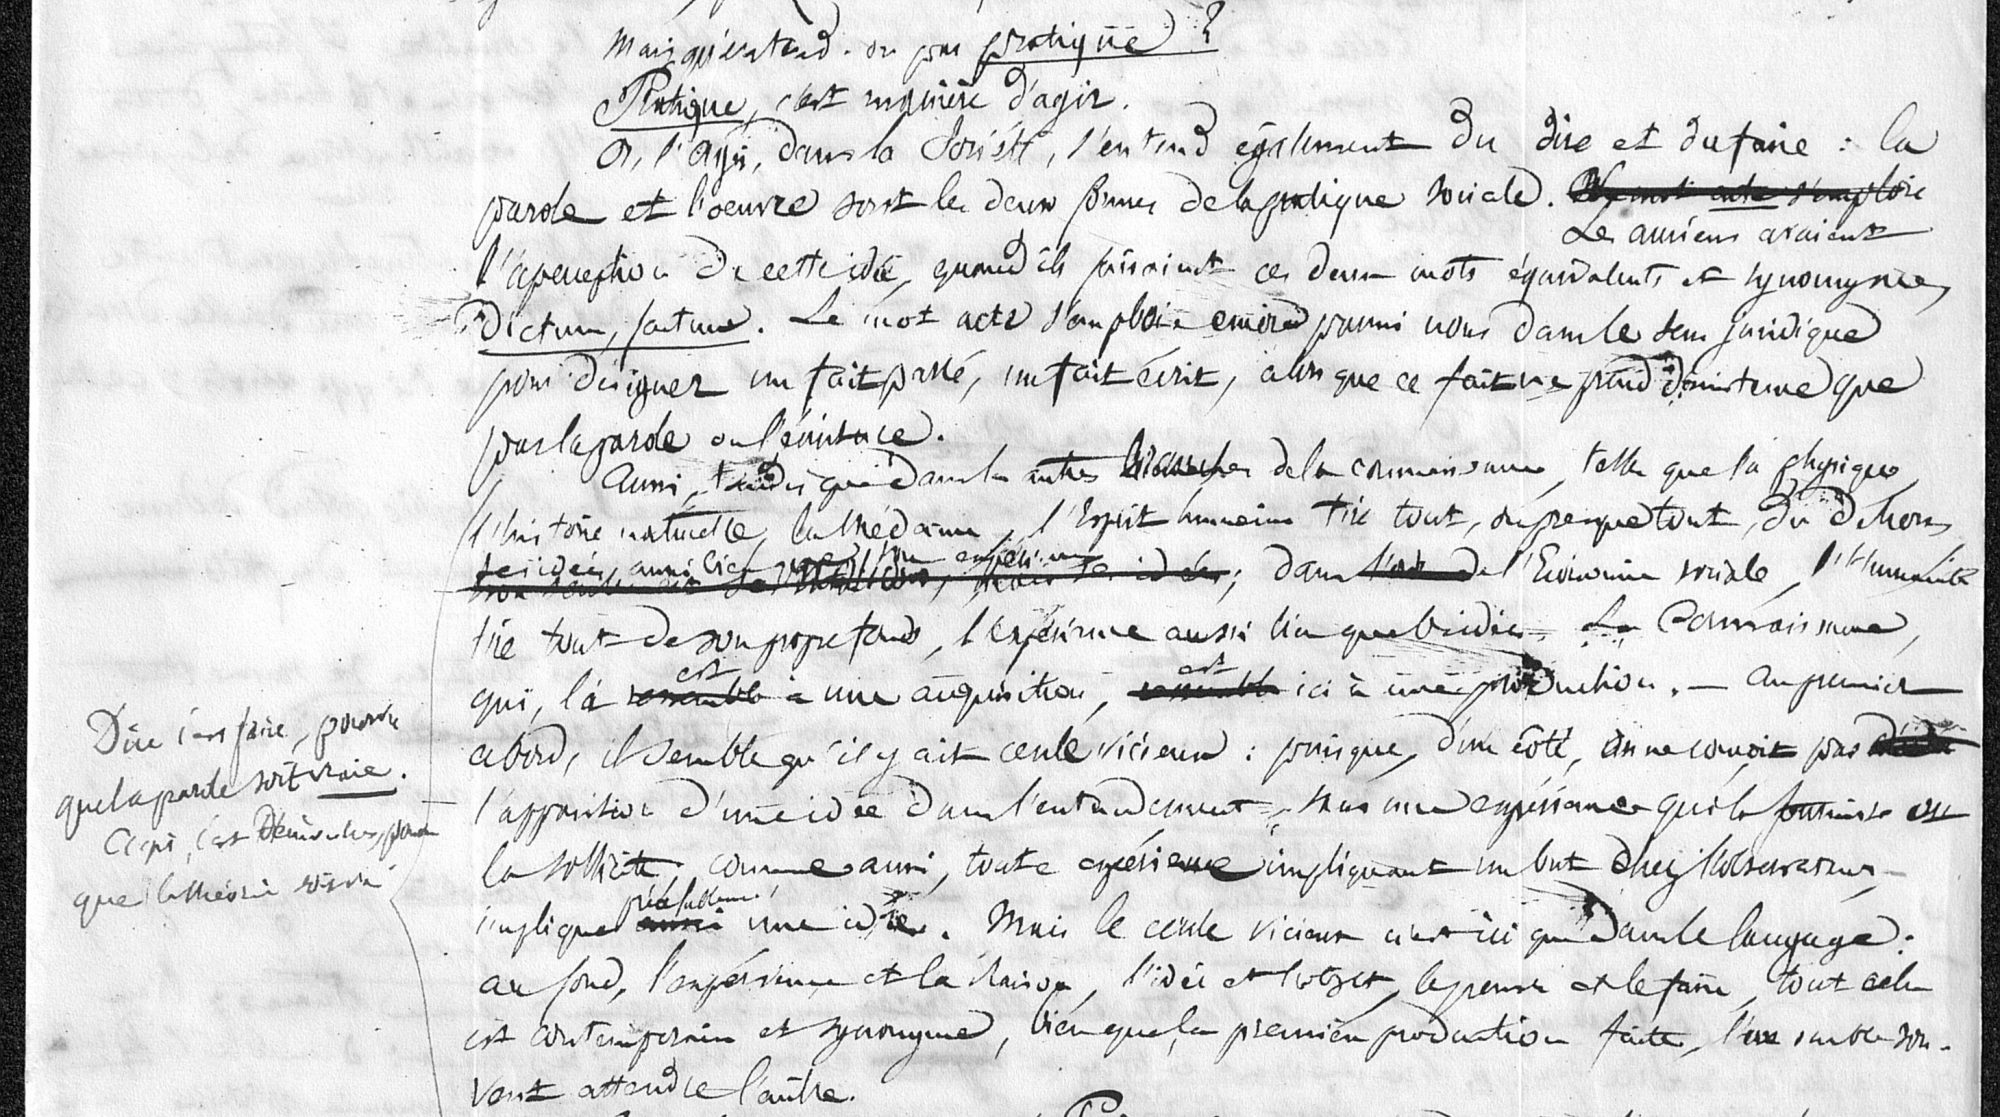 Mais qu'entend-on par pratique ?
Pratique, c'est manière d'agir.
Or, l'agir, dans la Société, s'entend également du dire et du faire : la
parole et l'oeuvre sont les deux formes de la pratique sociale. Le mot acte s'emploie
Les anciens avaient
l'aperception de cette idée, quand ils faisaient ces deux mots équivalents et synonymes,
Dictum, factum. Le mot acte s'emploie encore parmi nous dans le sens juridique
pour désigner un fait passé, un fait écrit, alors que ce fait ne prend d'existence que
par la parole ou l'écriture.
Aussi, tandis que dans les autres branches de la connaissance, telles que la physique,
l'histoire naturelle, la médecine, l'Esprit humain tire tout, ou presque tout, du dehors,
ses idées, aussi bien que son expérience
mais ses idées ; dans l'ordre de l'Economie sociale, l'Humanité
tire tout de son propre fonds, l'expérience aussi bien que les idées. La Connaissance,
est est
qui, là ressemble à une acquisition, ressemble ici à une production. — Au premier
abord, il semble qu'il y ait cercle vicieux : puisque, d'un côté, on ne conçoit pas
l'apparition d'une idée dans l'entendement, sans une expérience qui la fournisse ou
la sollicite, comme aussi, toute expérience impliquant un but chez l'observateur,
préalablement
implique aussi une idée. Mais le cercle vicieux n'est ici que dans le langage :
au fond, l'expérience et la Raison, l'idée et l'objet, le penser et le faire, tout cela
est contemporain et synonyme, bien que, la première production faite, l'une semble sou-
vent attendre l'autre.
Dire c'est faire, pourvu
que la parole soit vraie.
Agir, c'est Démontrer, pour
que la théorie soit